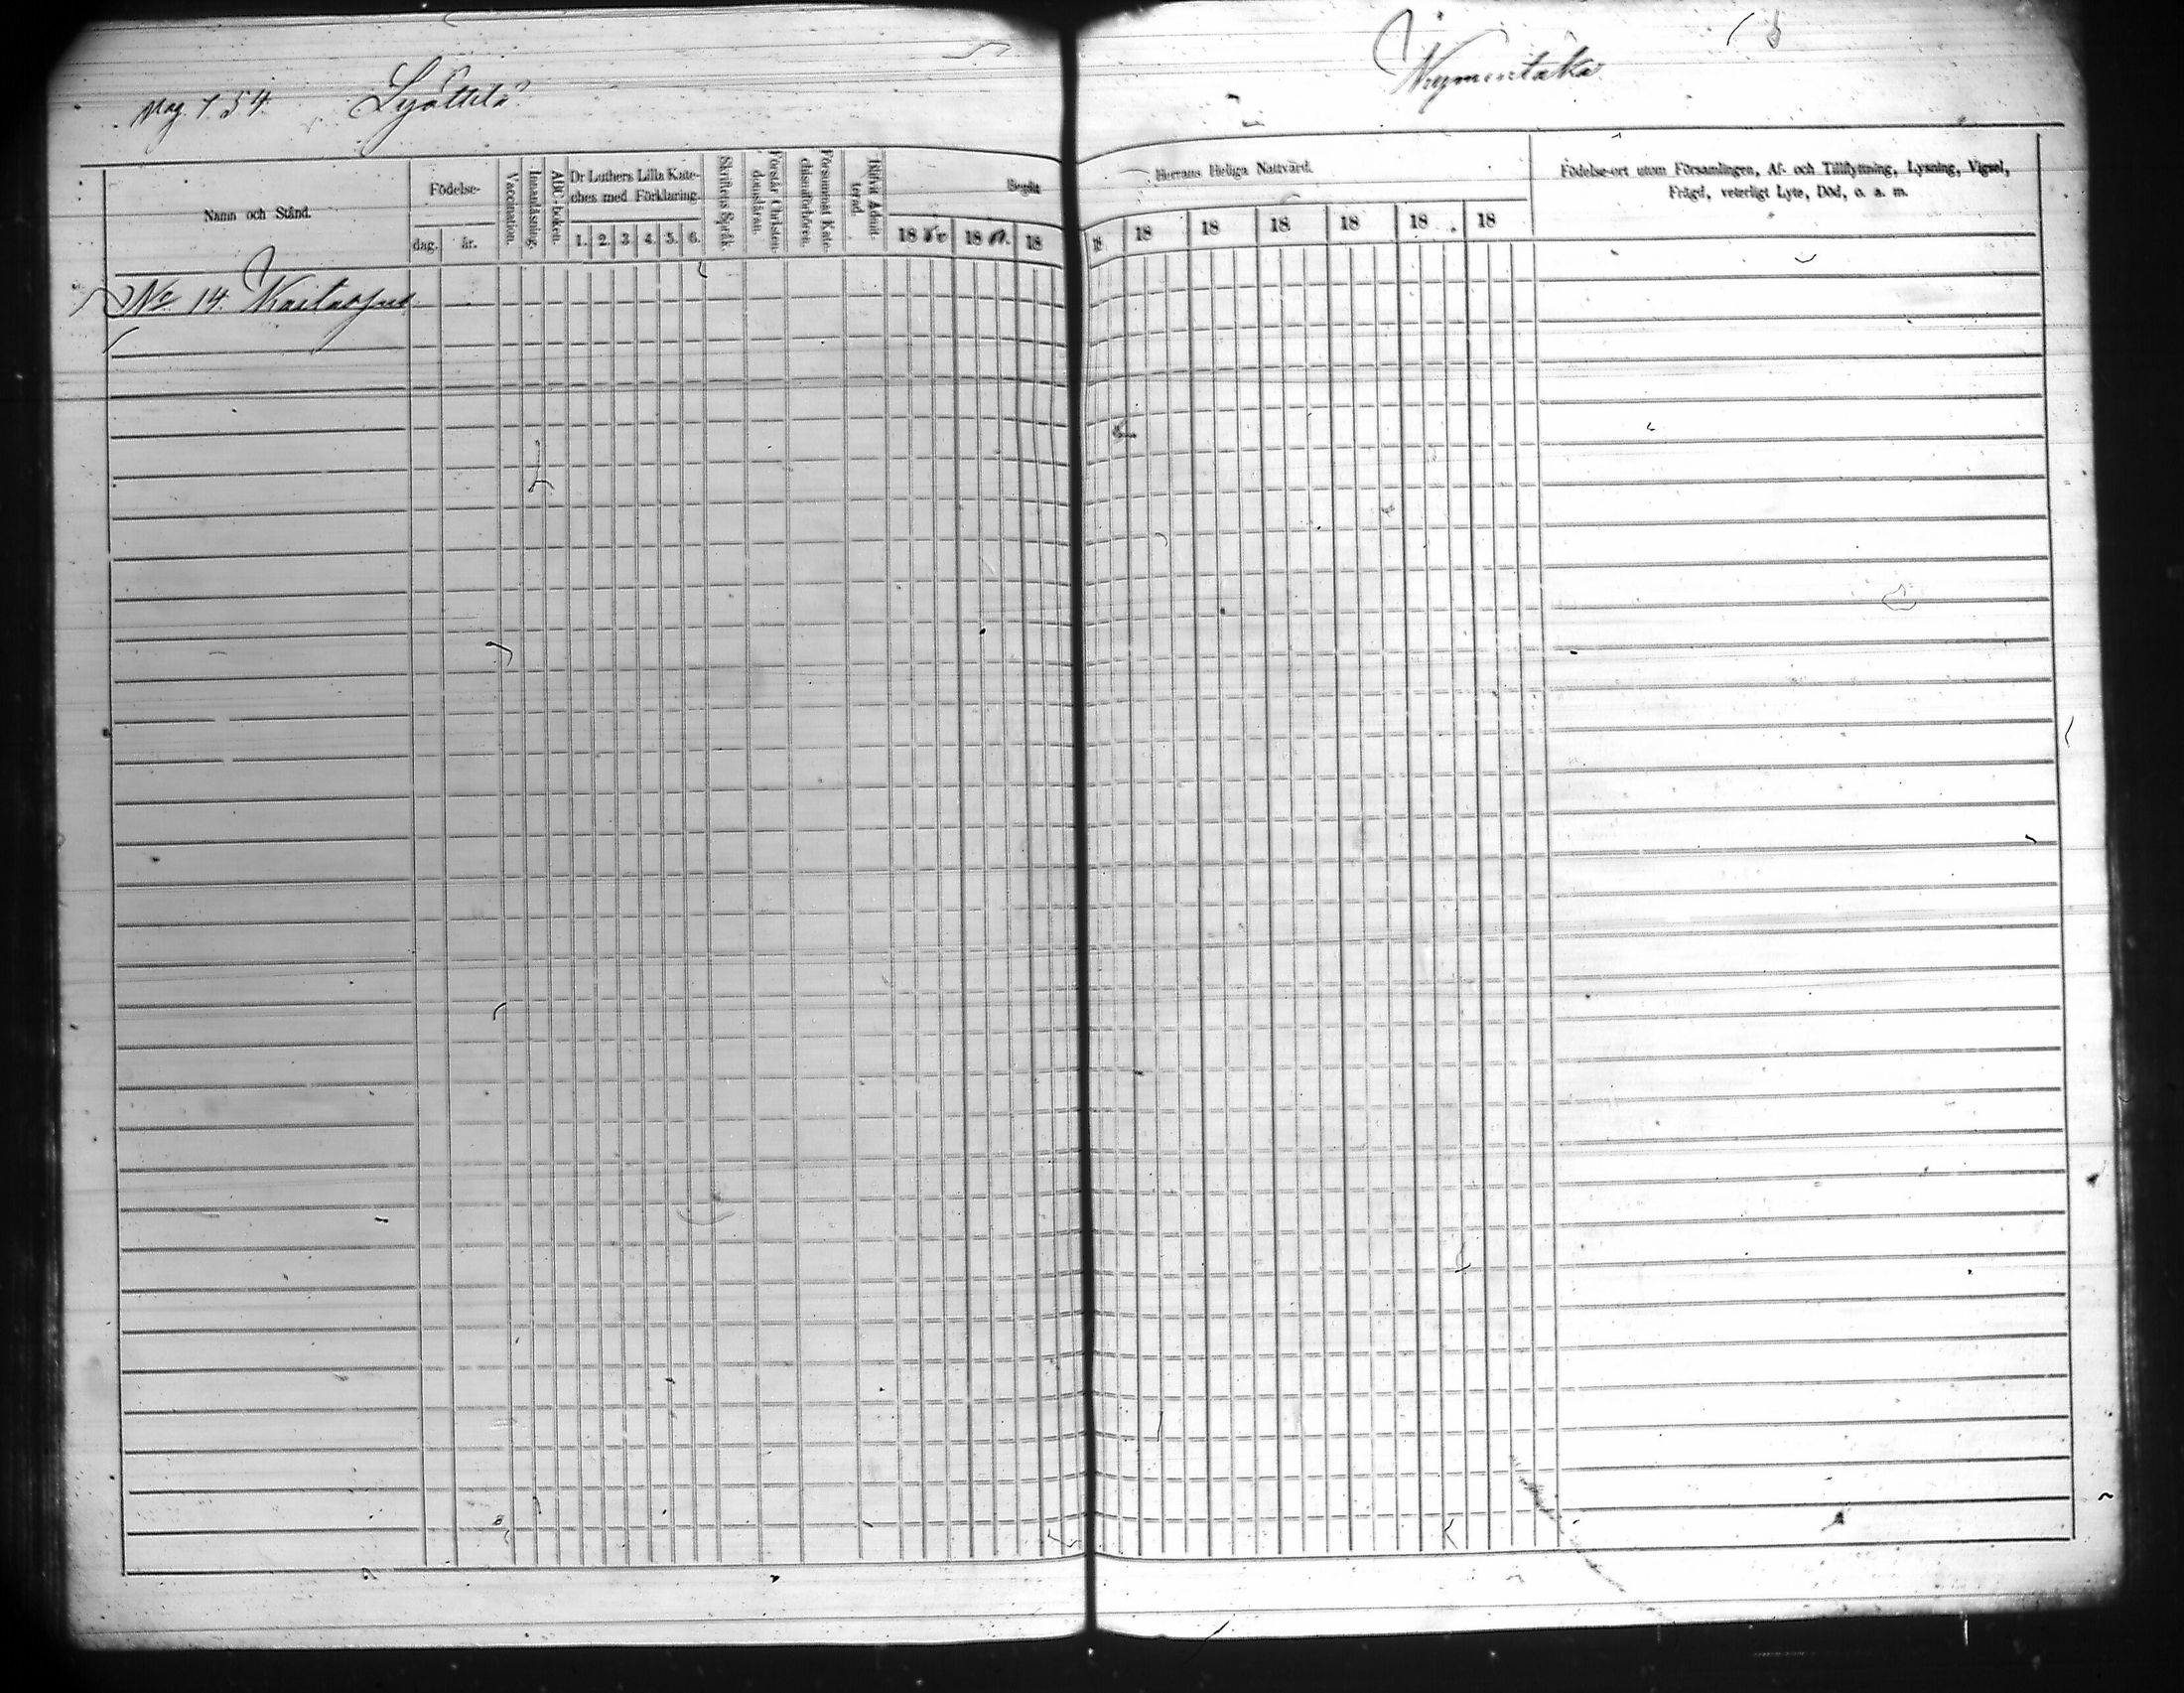 Pag. 154. Lyöttilä
Kymentaka
Namn och Stånd.
Födelse-
dag.
år.
Vaccination.
Innanläsning.
ABC-boken.
Dr Luthers Lilla Kate-
ches med Förklaring.
1. 2. 3. 4. 5. 6.
Skriftens Språk.
Förstår Christen-
domsläran.
Försummat Kate-
chismiförhören.
Blifvit Admit-
terad.
Begått
18 18 18
Herrans Heliga Nattvard.
18 18 18 18 18 18 18
Födelse-ort utom Församlingen, Af- och Tillflyttning, Lysning, Vigsel,
Frägd, veterligt Lyte, Död, o. a. m.
No 14.